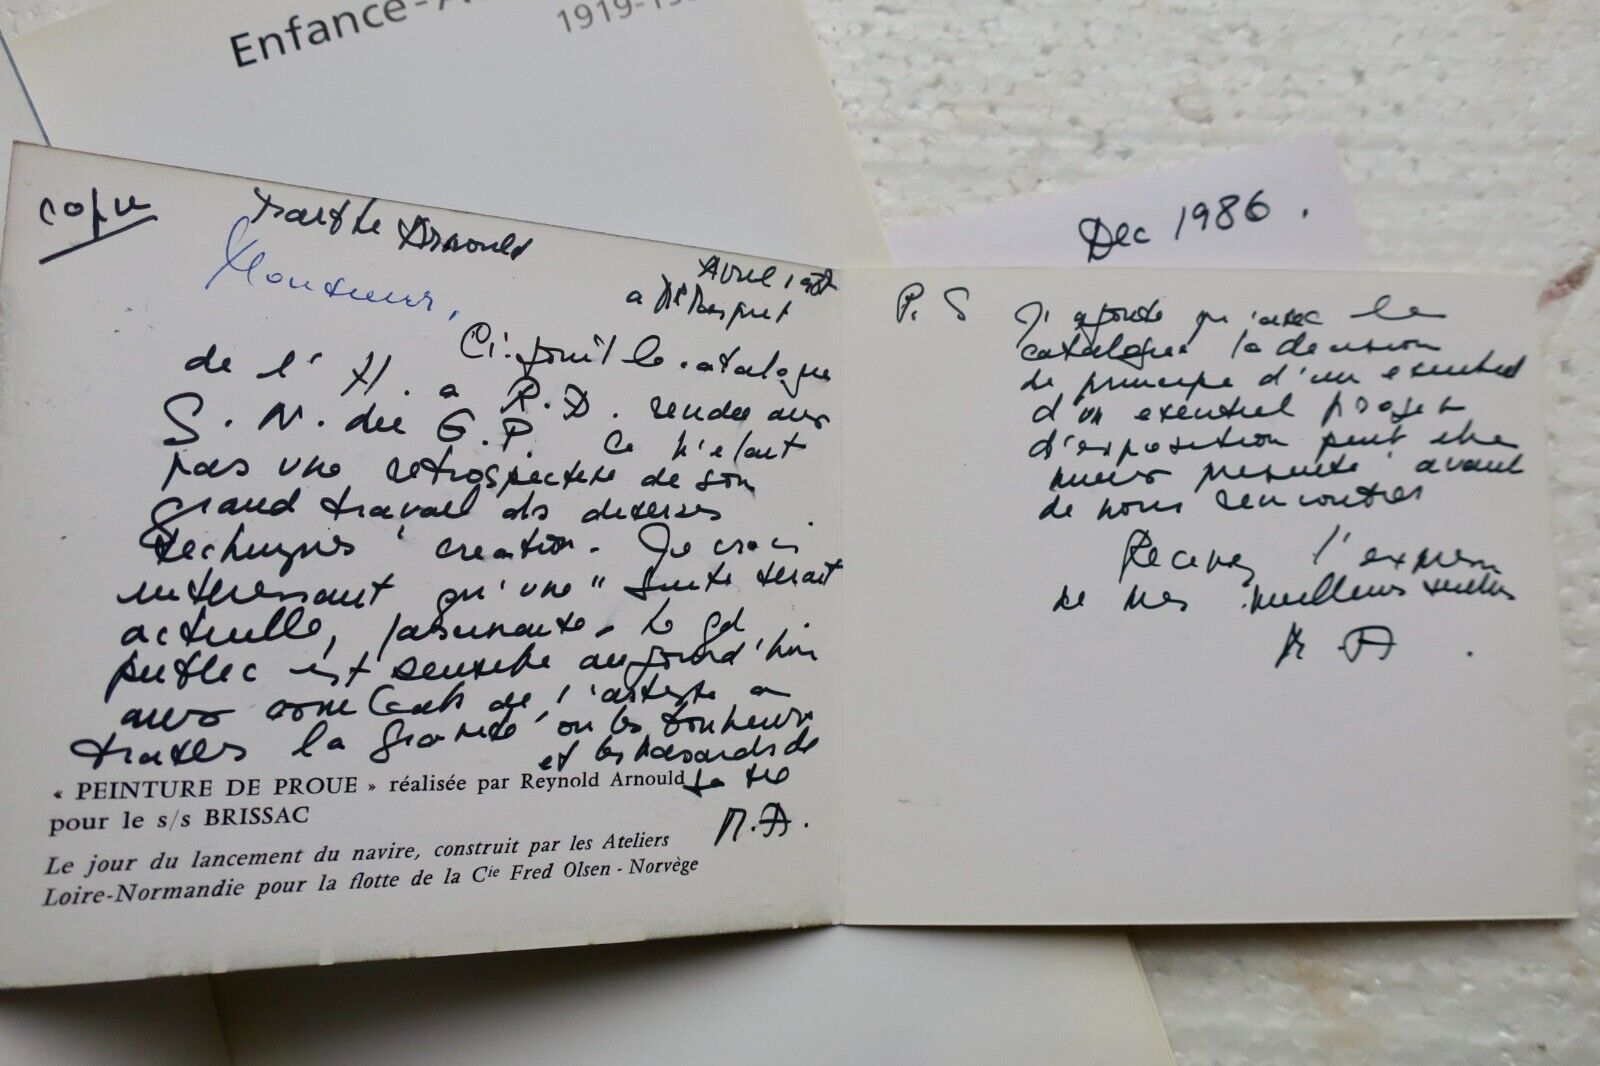 Enfance-A
1919-19
copie
Marthe Arnould
Monsieur,
Avril
a Mr
Dec 1986.
Ci-joint le catalogue
de l' H. a R.D. rendu aux
S. N. du G.P. Ce n'etant
pas une retrospective de son
grand travail ds diverses
techniques creation. Je crois
interessant qu'une "suite" serait
actuelle, fascinante. Le gd
public est sensible aujourd'hui
aux combats de l'artiste a
travers la gravité ou les bonheurs
et les hasards de
la vie
M.A.
« PEINTURE DE PROUE » réalisée par Reynold Arnould
pour le s/s BRISSAC
Le jour du lancement du navire, construit par les Ateliers
Loire-Normandie pour la flotte de la Cie Fred Olsen - Norvège
P.S J'ajoute qu'avec le
catalogue la decision
de principe d'un eventuel
d'un eventuel projet
d'exposition peut etre
mieux presenté avant
de nous rencontrer
Recevez l'expression
de mes meilleurs
M.A.